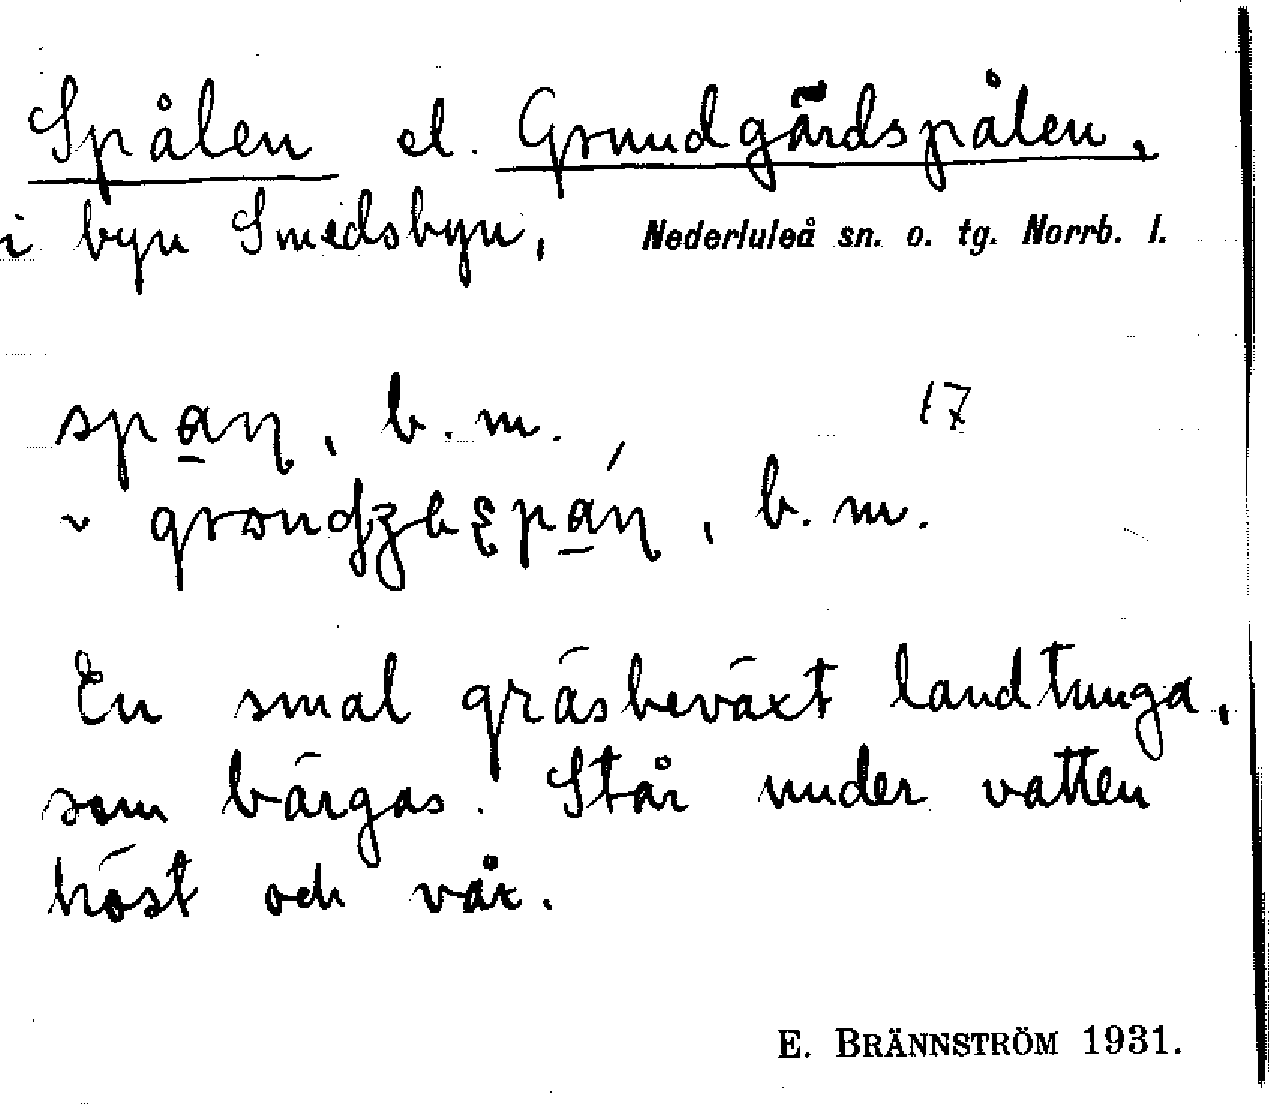 Spålen el. Grundgärdspålen,
i byn Smedsbyn, Nederluleå sn. o. tg. Norrb. l.
spaɳ, b.m. 17
b.m.
En smal gräsbeväxt landtunga,
som bärgas. Står under vatten
höst och vår.
E. BRÄNNSTRÖM 1931.